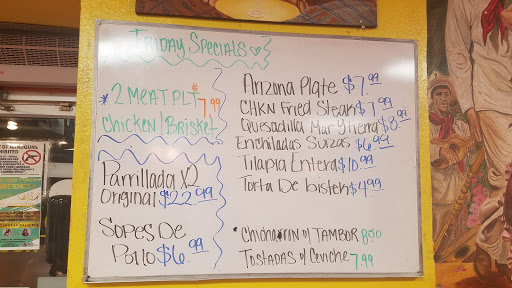 Friday Specials
* 2 MEAT PLT $7.99
Chicken/Brisket
Parrillada X2
Original $22.99
Sopes De
Pollo $6.99
Arizona Plate $7.99
CHKN Fried Steak $7.99
Quesadilla Mar y tierra $8.99
Enchiladas Suizas $6.99
Tilapia Entera $10.99
Torta De bistek $4.99
TAMBOR 8.00
TOSTADAS of Ceviche 7.99